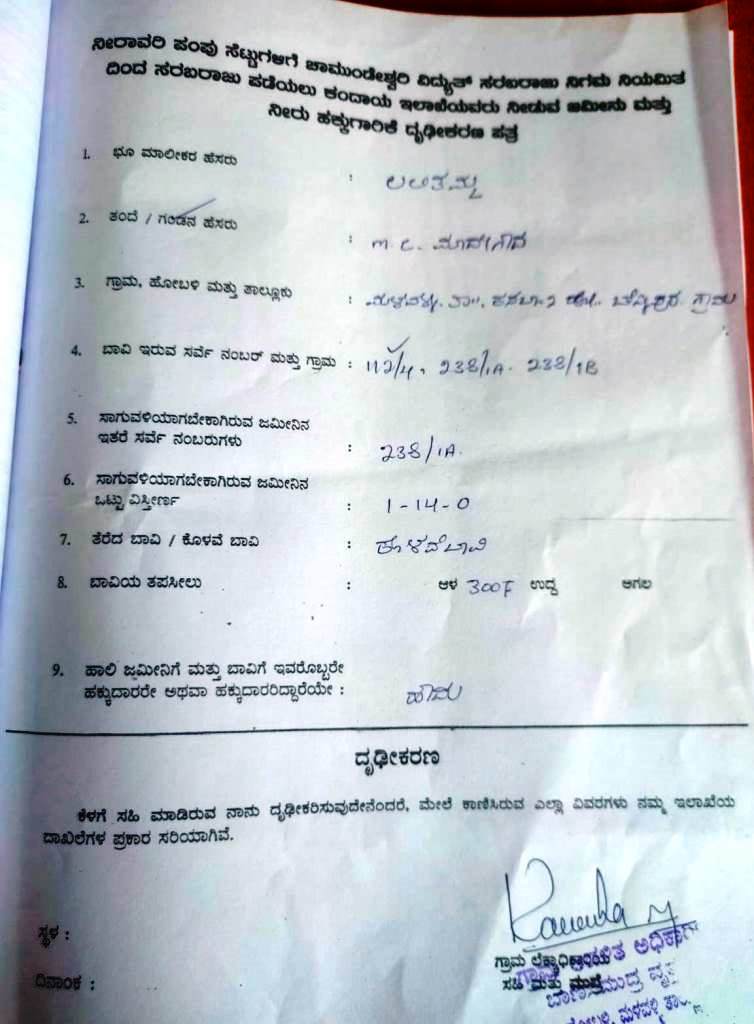 ನೀರಾವರಿ ಪಂಪು ಸೆಟ್ಟುಗಳಿಗೆ ಚಾಮುಂಡೇಶ್ವರಿ ವಿದ್ಯುತ್ ಸರಬರಾಜು ನಿಗಮ ನಿಯಮಿತ
ದಿಂದ ಸರಬರಾಜು ಪಡೆಯಲು ಕಂದಾಯ ಇಲಾಖೆಯವರು ನೀಡುವ ಜಮೀನು ಮತ್ತು
ನೀರು ಹಕ್ಕುಗಾರಿಕೆ ದೃಢೀಕರಣ ಪತ್ರ
1. ಭೂ ಮಾಲೀಕರ ಹೆಸರು : ಲಲಿತಮ್ಮ
2. ತಂದೆ / ಗಂಡನ ಹೆಸರು : m. c. ಮಾದೇಗೌಡ
3. ಗ್ರಾಮ, ಹೋಬಳಿ ಮತ್ತು ತಾಲ್ಲೂಕು : ಮಳವಳ್ಳಿ ತಾ॥, ಕಸಬಾ-2 ಹೋ. ಗ್ರಾಮ
4. ಬಾವಿ ಇರುವ ಸರ್ವೆ ನಂಬರ್ ಮತ್ತು ಗ್ರಾಮ : 112/4, 238/1A. 238/1B
5. ಸಾಗುವಳಿಯಾಗಬೇಕಾಗಿರುವ ಜಮೀನಿನ
ಇತರೆ ಸರ್ವೆ ನಂಬರುಗಳು : 238/1A.
6. ಸಾಗುವಳಿಯಾಗಬೇಕಾಗಿರುವ ಜಮೀನಿನ
ಒಟ್ಟು ವಿಸ್ತೀರ್ಣ : 1-14-0
7. ತೆರೆದ ಬಾವಿ / ಕೊಳವೆ ಬಾವಿ : ಕೊಳವೆಬಾವಿ
8. ಬಾವಿಯ ತಪಸೀಲು : ಆಳ 300F ಉದ್ದ ಅಗಲ
9. ಹಾಲಿ ಜಮೀನಿಗೆ ಮತ್ತು ಬಾವಿಗೆ ಇವರೊಬ್ಬರೇ
ಹಕ್ಕುದಾರರೇ ಅಥವಾ ಹಕ್ಕುದಾರರಿದ್ದಾರೆಯೇ : ಹೌದು
ದೃಢೀಕರಣ
ಕೆಳಗೆ ಸಹಿ ಮಾಡಿರುವ ನಾನು ದೃಢೀಕರಿಸುವುದೇನೆಂದರೆ, ಮೇಲೆ ಕಾಣಿಸಿರುವ ಎಲ್ಲಾ ವಿವರಗಳು ನಮ್ಮ ಇಲಾಖೆಯ
ದಾಖಲೆಗಳ ಪ್ರಕಾರ ಸರಿಯಾಗಿವೆ.
ಸ್ಥಳ :
ಗ್ರಾಮ ಲೆಕ್ಕಾಧಿಕಾರಿಯ
ಸಹಿ ಮತ್ತು ಮುದ್ರೆ
ದಿನಾಂಕ :